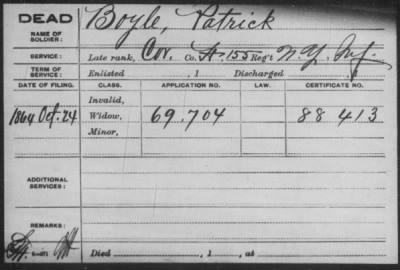 DEAD
NAME OF SOLDIER: Boyle, Patrick
SERVICE: Late rank, Cor. Co. A. 155 Reg't N.Y. Inf.
TERM OF SERVICE: Enlisted , 1 Discharged , 1
DATE OF FILING. CLASS. APPLICATION NO. LAW. CERTIFICATE NO.
Invalid,
1864 Oct. 24 Widow, 69.704 88 413
Minor,
ADDITIONAL SERVICES:
REMARKS:
Died , 1 , at